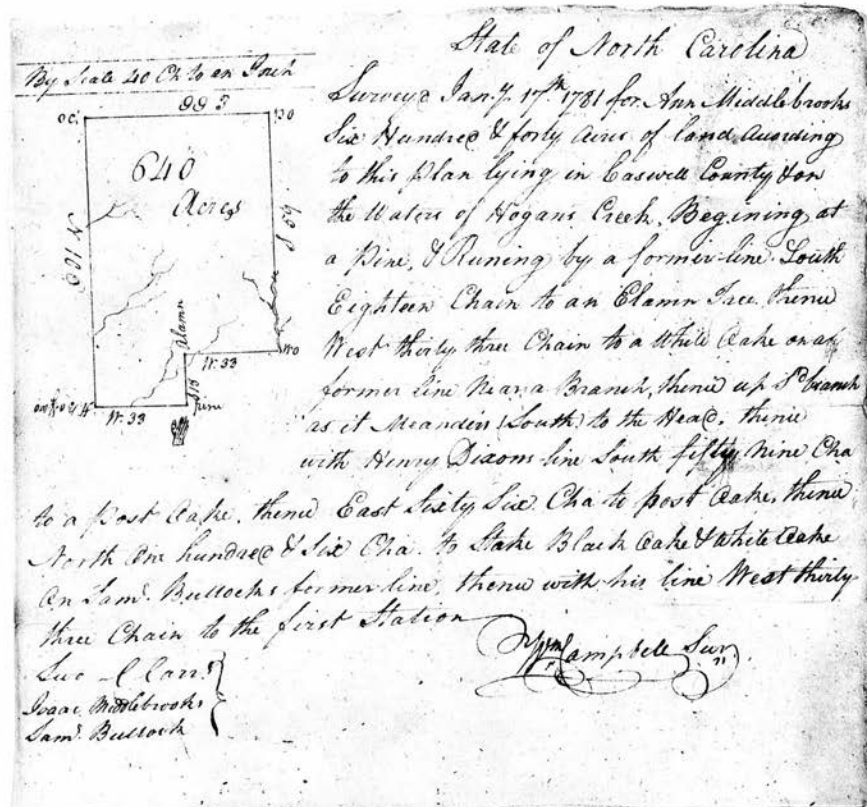 State of North Carolina
By Scale 40 Ch to an Inch
Survey'd Jany. 17th. 1781 for Ann Middlebrooks
Six Hundred & forty Acres of land Acording
to this Plan lying in Caswell County & on
the Waters of Hogans Creek. Begining at
a Pine, & Runing by a former line South
Eighteen Chain to an Elamn Tree thence
West thirty three Chain to a White Oake on a
former line Near a Branch, thence up Sd branch
as it Meanders (South) to the Head. thence
with Henry Dixons line South fifty Nine Cha
to a post Oake. thence East Sixty Six Cha to post Oake, thence
North One hundred & Six Cha. to Stake Black Oake & White Oake
On Saml. Bullocks former line, thence with his line West thirty
three Chain to the first Station
Wm Campbell Sur.
Isaac Middlebrooks
Saml. Bullock
E 66
PO
PO
640
Acres
S 59
N 106
Alamn
W. 33
WO
W. 33
S 18
Pine